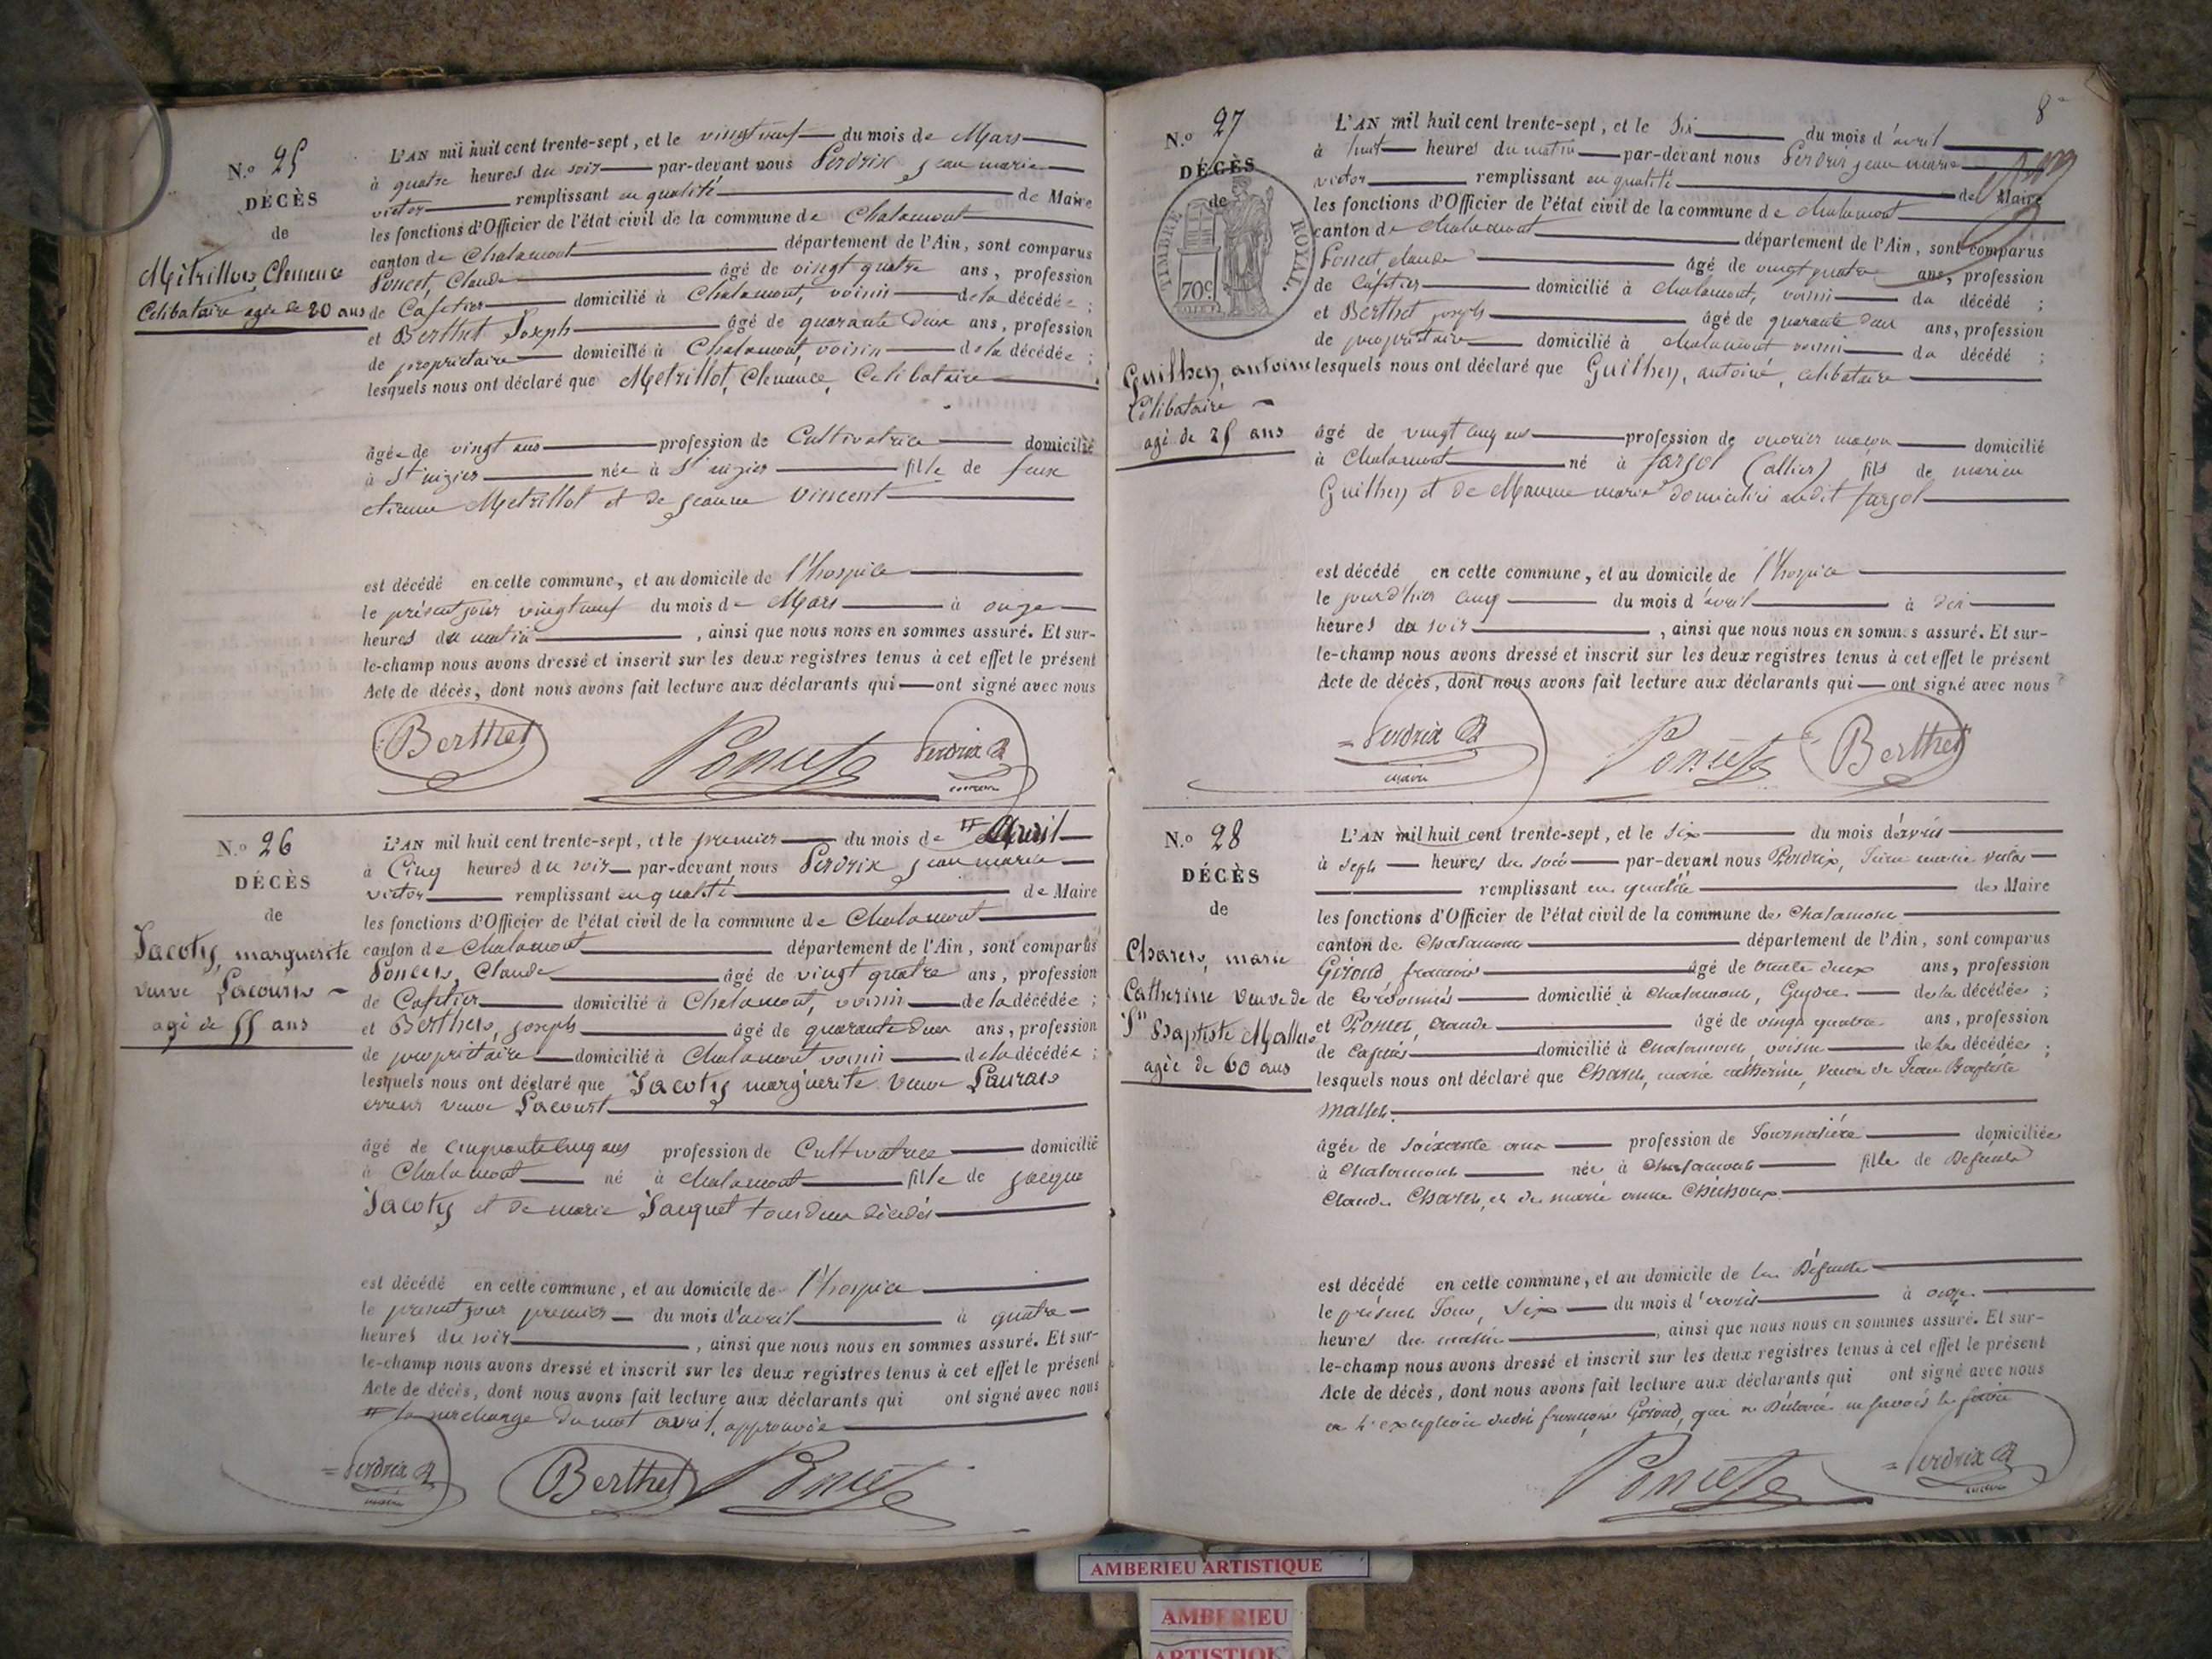 N.o 25
DÉCÈS
de
Métrillot, Clemence
Célibataire agée de 20 ans
L'AN mil huit cent trente-sept, et le vingt neuf du mois de Mars
à quatre heures du soir par-devant nous Perdrix jean marie
victor remplissant en qualité de Maire
les fonctions d'Officier de l'état civil de la commune de Chalamont
canton de Chalamont département de l'Ain, sont comparus
Poncet, Claude âgé de vingt quatre ans, profession
de Cafetier domicilié à Chalamont, voisin de la décédée ;
et Berthet Joseph âgé de quarante deux ans, profession
de propriétaire domicilié à Chalamont, voisin de la décédée ;
lesquels nous ont déclaré que Metrillot, Clemence, Celibataire
âgée de vingt ans profession de Cultivatrice domicilié
à St nizier née à St nizier fille de feux
etienne Metrillot et de jeanne Vincent
est décédé en cette commune, et au domicile de l'hospice
le présent jour vingt neuf du mois de Mars à onze
heures du matin , ainsi que nous nous en sommes assuré. Et sur-
le-champ nous avons dressé et inscrit sur les deux registres tenus à cet effet le présent
Acte de décès, dont nous avons fait lecture aux déclarants qui ont signé avec nous
Berthet Poncet Perdrix
maire
N.o 26
DÉCÈS
de
Jacoty, marguerite
veuve Lacourt
agé de 55 ans
L'AN mil huit cent trente-sept, et le premier du mois de # Avril
à Cinq heures du soir par-devant nous Perdrix jean marie
victor remplissant en qualité de Maire
les fonctions d'Officier de l'état civil de la commune de Chalamont
canton de Chalamont département de l'Ain, sont comparus
Poncet, Claude âgé de vingt quatre ans, profession
de Cafetier domicilié à Chalamont, voisin de la décédée ;
et Berthet, joseph âgé de quarante deux ans, profession
de propriétaire domicilié à Chalamont voisin de la décédée ;
lesquels nous ont déclaré que Jacoty marguerite veuve
erreur veuve Lacourt
âgé de cinquante cinq ans profession de Cultivatrice domicilié
à Chalamont né à chalamont fille de jacque
Jacoty et de marie Jacquet tous deux décédés
est décédé en cette commune, et au domicile de l'hospice
le présent jour premier du mois d'avril à quatre
heures du soir , ainsi que nous nous en sommes assuré. Et sur-
le-champ nous avons dressé et inscrit sur les deux registres tenus à cet effet le présent
Acte de décès, dont nous avons fait lecture aux déclarants qui ont signé avec nous
# la surcharge du mot avril, approuvée
Perdrix Berthet Poncet
maire
8
N.o 27
DÉCÈS
de
TIMBRE ROYAL.
70c
Guilhen, antoine
Célibataire
agé de 25 ans
L'AN mil huit cent trente-sept, et le six du mois d'avril
à huit heures du matin par-devant nous Perdrix jean marie
victor remplissant en qualité de Maire
les fonctions d'Officier de l'état civil de la commune de chalamont
canton de chalamont département de l'Ain, sont comparus
Poncet claude âgé de vingt quatre ans, profession
de Cafetier domicilié à chalamont, voisin du décédé ;
et Berthet joseph âgé de quarante deux ans, profession
de propriétaire domicilié à chalamont voisin du décédé ;
lesquels nous ont déclaré que Guilhen, antoine, celibataire
âgé de vingt cinq ans profession de ouvrier maçon domicilié
à Chalamont né à farjol (allier) fils de marien
Guilhen et de marie domiciliés audit farjol
est décédé en cette commune, et au domicile de l'hospice
le jour d'hier cinq du mois d'avril à dix
heures du soir , ainsi que nous nous en sommes assuré. Et sur-
le-champ nous avons dressé et inscrit sur les deux registres tenus à cet effet le présent
Acte de décès, dont nous avons fait lecture aux déclarants qui ont signé avec nous
Perdrix Poncet Berthet
maire
N.o 28
DÉCÈS
de
Charet, marie
Catherine veuve de
Jn Baptiste Mallet
agée de 60 ans
L'AN mil huit cent trente-sept, et le six du mois d'avril
à sept heures du soir par-devant nous Perdrix, Jean marie victor
remplissant en qualité de Maire
les fonctions d'Officier de l'état civil de la commune de Chalamont
canton de Chalamont département de l'Ain, sont comparus
Giroud françois âgé de trente deux ans, profession
de Cordonnier domicilié à Chalamont, Gendre de la décédée ;
et Poncet, Claude âgé de vingt quatre ans, profession
de Cafetier domicilié à Chalamont, voisin de la décédée ;
lesquels nous ont déclaré que Charet, marie catherine, Veuve de Jean Baptiste
Mallet
âgée de soixante ans profession de Journalière domiciliée
à Chalamont née à Chalamont fille de Défunts
Claude Charet, et de marie anne
est décédé en cette commune, et au domicile de la Défunte
le présent Jour, six du mois d'avril à onze
heures du matin , ainsi que nous nous en sommes assuré. Et sur-
le-champ nous avons dressé et inscrit sur les deux registres tenus à cet effet le présent
Acte de décès, dont nous avons fait lecture aux déclarants qui ont signé avec nous
à l'exception dudit françois Giroud, qui a Déclaré ne savoir le faire
Poncet Perdrix
maire
AMBERIEU ARTISTIQUE
AMBERIEU
ARTISTIQUE